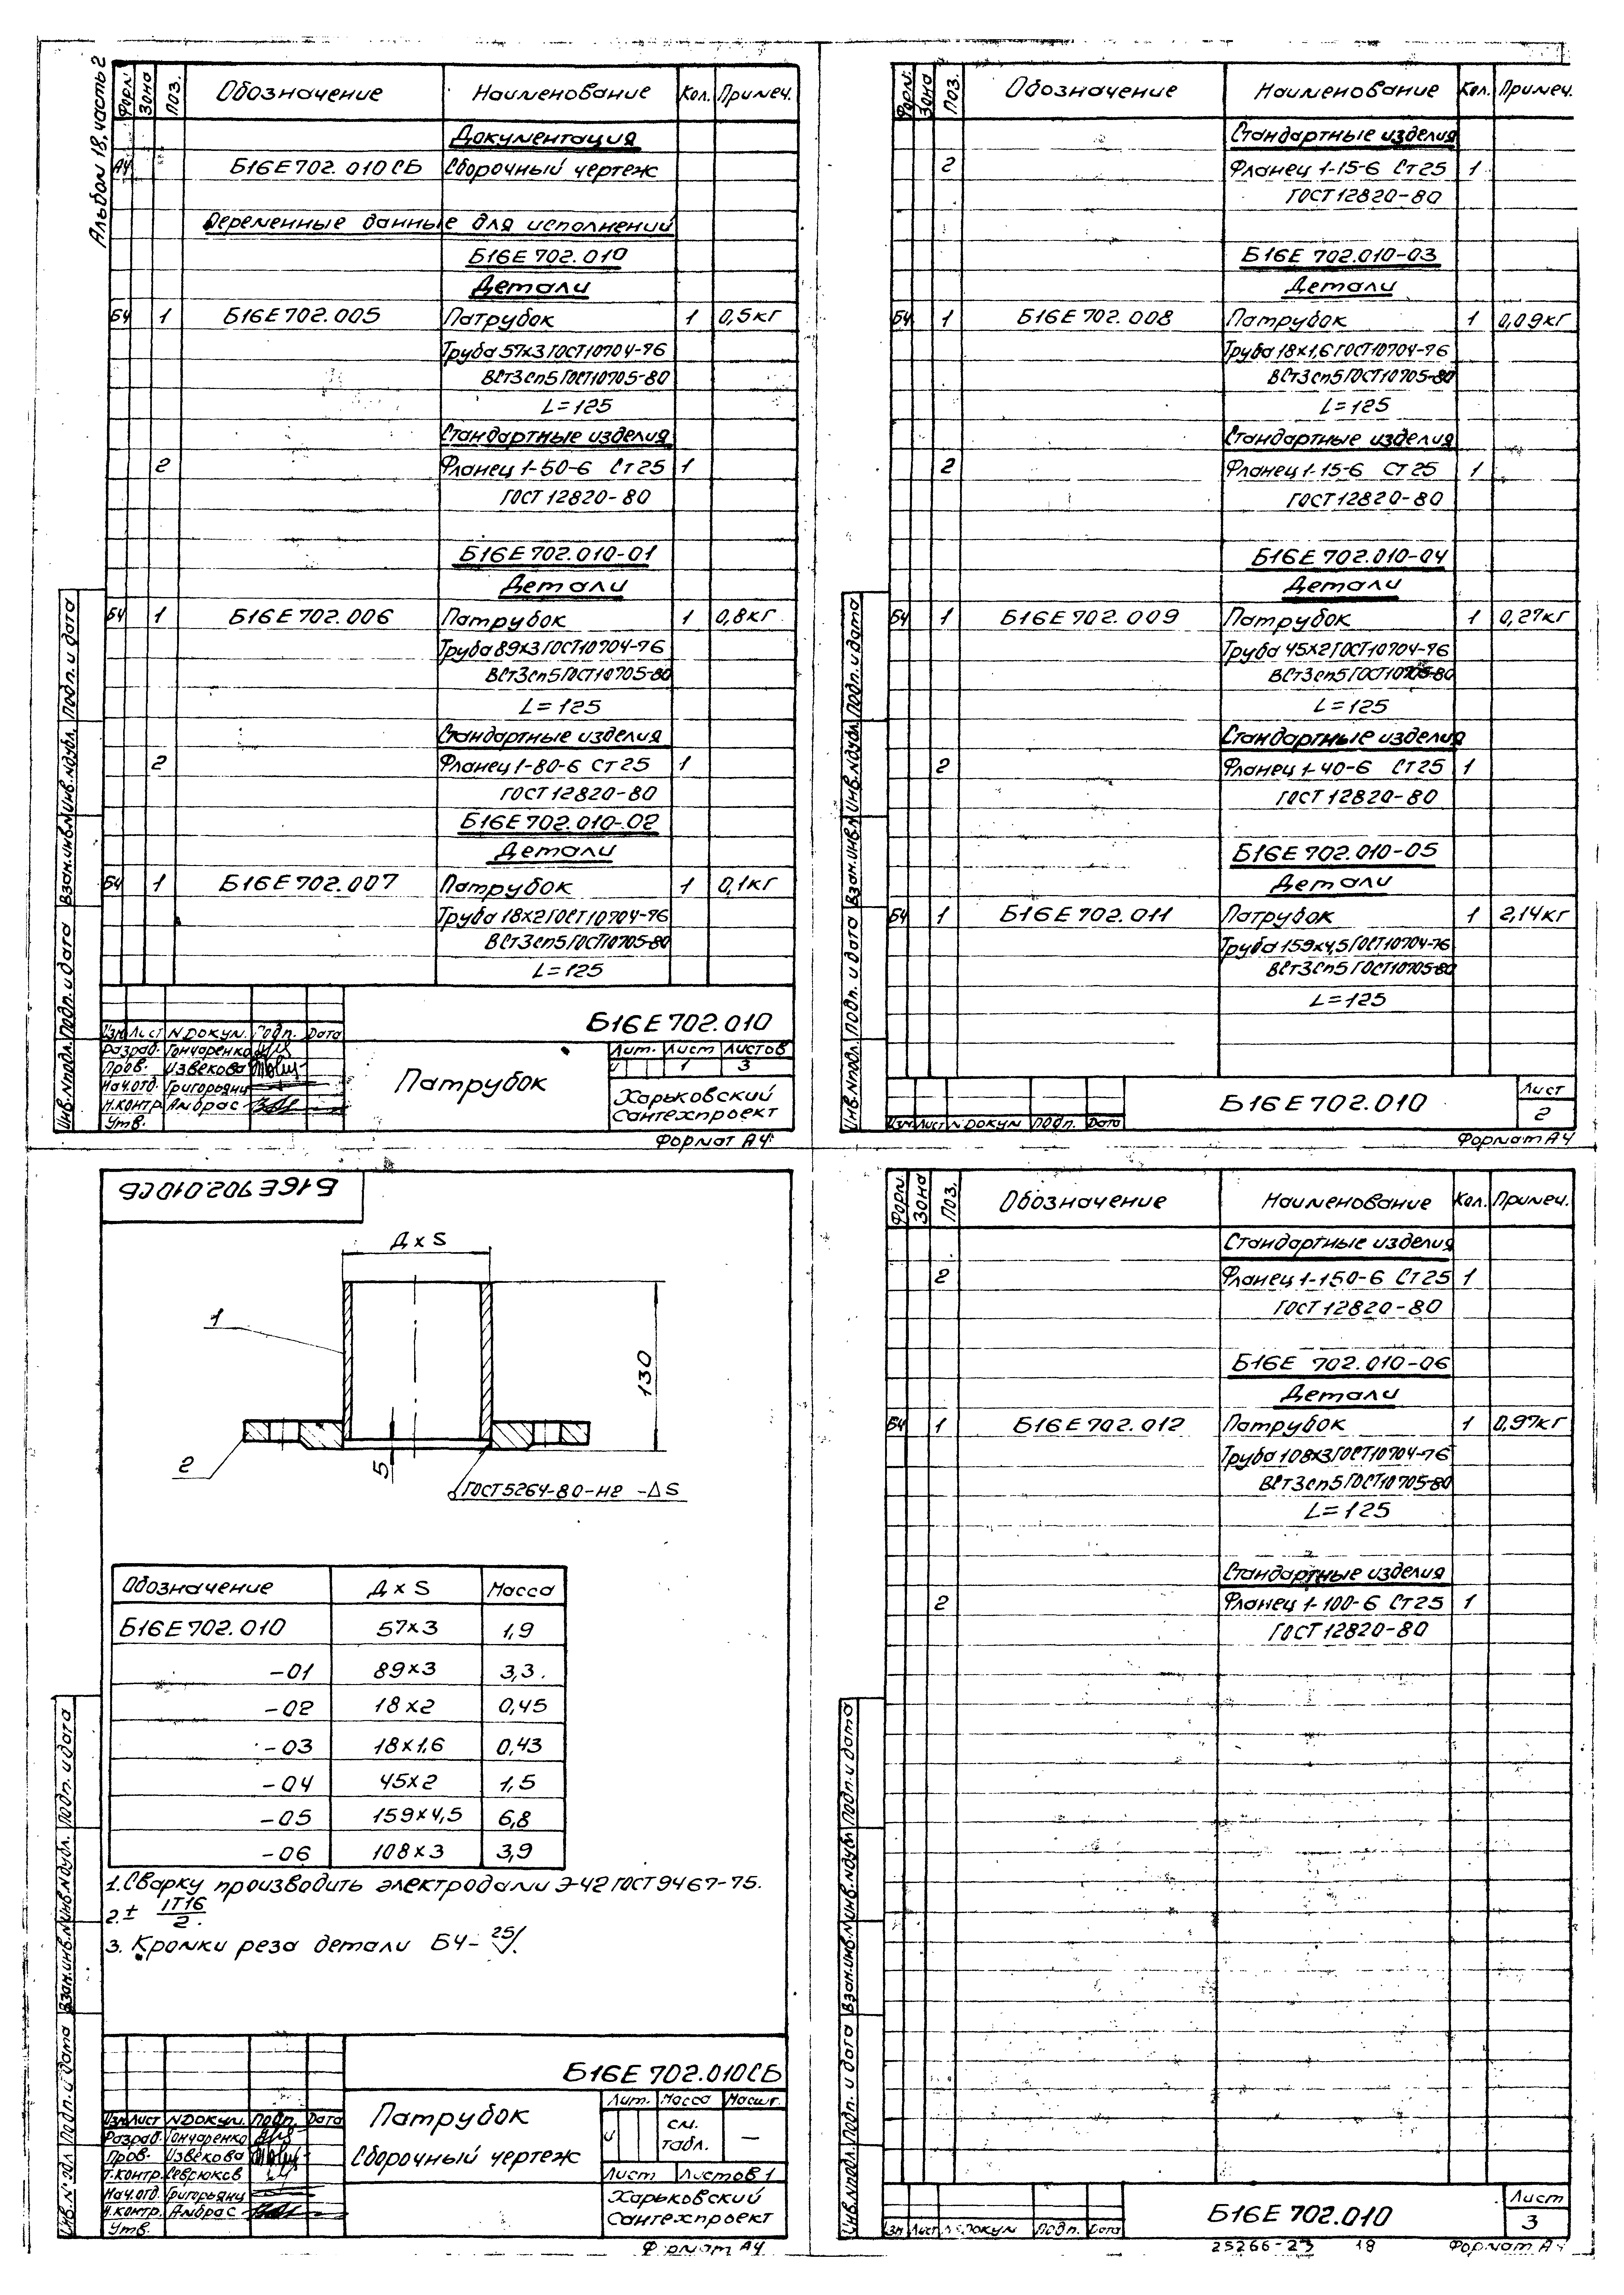 Альбом 18, часть 2
Форм. Зона Поз. Обозначение Наименование Кол. Примеч.
Документация
А4 Б16Е702.010СБ Сборочный чертеж
Переменные данные для исполнений
Б16Е 702.010
Детали
Б4 1 Б16Е702.005 Патрубок 1 0,5кг
Труба 57х3 ГОСТ10704-76
ВСт3сп5 ГОСТ10705-80
L=125
Стандартные изделия
2 Фланец 1-50-6 Ст25 1
ГОСТ 12820-80
Б16Е 702.010-01
Детали
Б4 1 Б16Е702.006 Патрубок 1 0,8кг
Труба 89х3 ГОСТ10704-76
ВСт3сп5 ГОСТ10705-80
L=125
Стандартные изделия
2 Фланец 1-80-6 Ст25 1
ГОСТ 12820-80
Б16Е702.010-02
Детали
Б4 1 Б16Е702.007 Патрубок 1 0,1кг
Труба 18х2 ГОСТ10704-76
ВСт3сп5 ГОСТ10705-80
L=125
Инв.Nподл. Подп. и дата Взам.инв.N Инв.Nдубл. Подп. и дата
Б16Е702.010
Изм Лист N докум. Подп. Дата
Разраб. Гончаренко
Пров. Извекова
Нач.отд. Григорьянц
Н.контр. Амбрас
Утв.
Патрубок
Лит. Лист Листов
и 1 3
Харьковский
Сантехпроект
Формат А4
Форм. Зона Поз. Обозначение Наименование Кол. Примеч.
Стандартные изделия
2 Фланец 1-15-6 Ст25 1
ГОСТ 12820-80
Б16Е 702.010-03
Детали
Б4 1 Б16Е702.008 Патрубок 1 0,09кг
Труба 18х1,6 ГОСТ10704-76
ВСт3сп5 ГОСТ10705-80
L=125
Стандартные изделия
2 Фланец 1-15-6 Ст25 1
ГОСТ 12820-80
Б16Е 702.010-04
Детали
Б4 1 Б16Е702.009 Патрубок 1 0,27кг
Труба 45х2 ГОСТ10704-76
ВСт3сп5 ГОСТ10705-80
L=125
Стандартные изделия
2 Фланец 1-40-6 Ст25 1
ГОСТ 12820-80
Б16Е 702.010-05
Детали
Б4 1 Б16Е702.011 Патрубок 1 2,14кг
Труба 159х4,5 ГОСТ10704-76
ВСт3сп5 ГОСТ10705-80
L=125
Инв.Nподл. Подп. и дата Взам.инв.N Инв.Nдубл. Подп. и дата
Изм Лист N докум Подп. Дата
Б16Е702.010
Лист
2
Формат А4
Б16Е702.010СБ
Д х S
1
130
2
5
ГОСТ5264-80-Н2 -△S
Обозначение Д х S Масса
Б16Е702.010 57х3 1,9
-01 89х3 3,3
-02 18х2 0,45
-03 18х1,6 0,43
-04 45х2 1,5
-05 159х4,5 6,8
-06 108х3 3,9
1. Сварку производить электродами Э-42 ГОСТ9467-75.
2. ± IT16/2.
3. Кромки реза детали БЧ- 25/.
Инв.N подл Подп. и дата Взам.инв.N Инв.Nдубл. Подп. и дата
Б16Е 702.010СБ
Изм Лист N докум. Подп. Дата
Разраб. Гончаренко
Пров. Извекова
Т.контр. Севрюков
Нач.отд. Григорьянц
Н.контр. Амбрас
Утв.
Патрубок
Сборочный чертеж
Лит. Масса Масшт.
и см. табл. —
Лист Листов 1
Харьковский
Сантехпроект
Формат А4
Форм. Зона Поз. Обозначение Наименование Кол. Примеч.
Стандартные изделия
2 Фланец 1-150-6 Ст25 1
ГОСТ 12820-80
Б16Е 702.010-06
Детали
Б4 1 Б16Е702.012 Патрубок 1 0,97кг
Труба 108х3 ГОСТ10704-76
ВСт3сп5 ГОСТ10705-80
L=125
Стандартные изделия
2 Фланец 1-100-6 Ст25 1
ГОСТ 12820-80
Инв.Nподл. Подп. и дата Взам.инв.N Инв.Nдубл Подп. и дата
Изм Лист N докум Подп. Дата
Б16Е702.010
Лист
3
25266-23 18 Формат А4